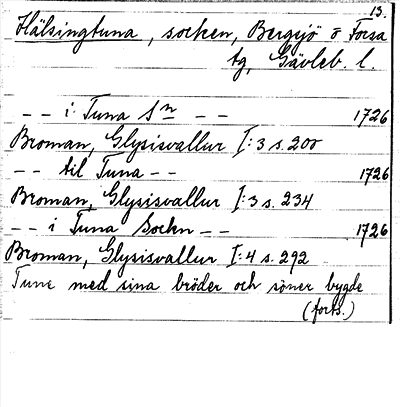 13.
Hälsingtuna, socken, Bergsjö o Forsa
tg, Gävleb. l.
-- i Tuna Sn -- 1726
Broman, Glysisvallur I:3 s. 200
-- til Tuna -- 1726
Broman, Glysisvallur I:3 s. 234
-- i Tuna Sockn -- 1726
Broman, Glysisvallur I:4 s. 292
Tune med sina bröder och söner bygde
(forts.)